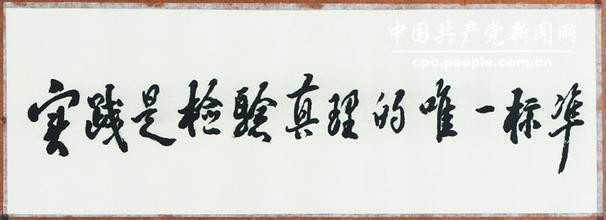 中国共产党新闻网
cpc.people.com.cn
实践是检验真理的唯一标准